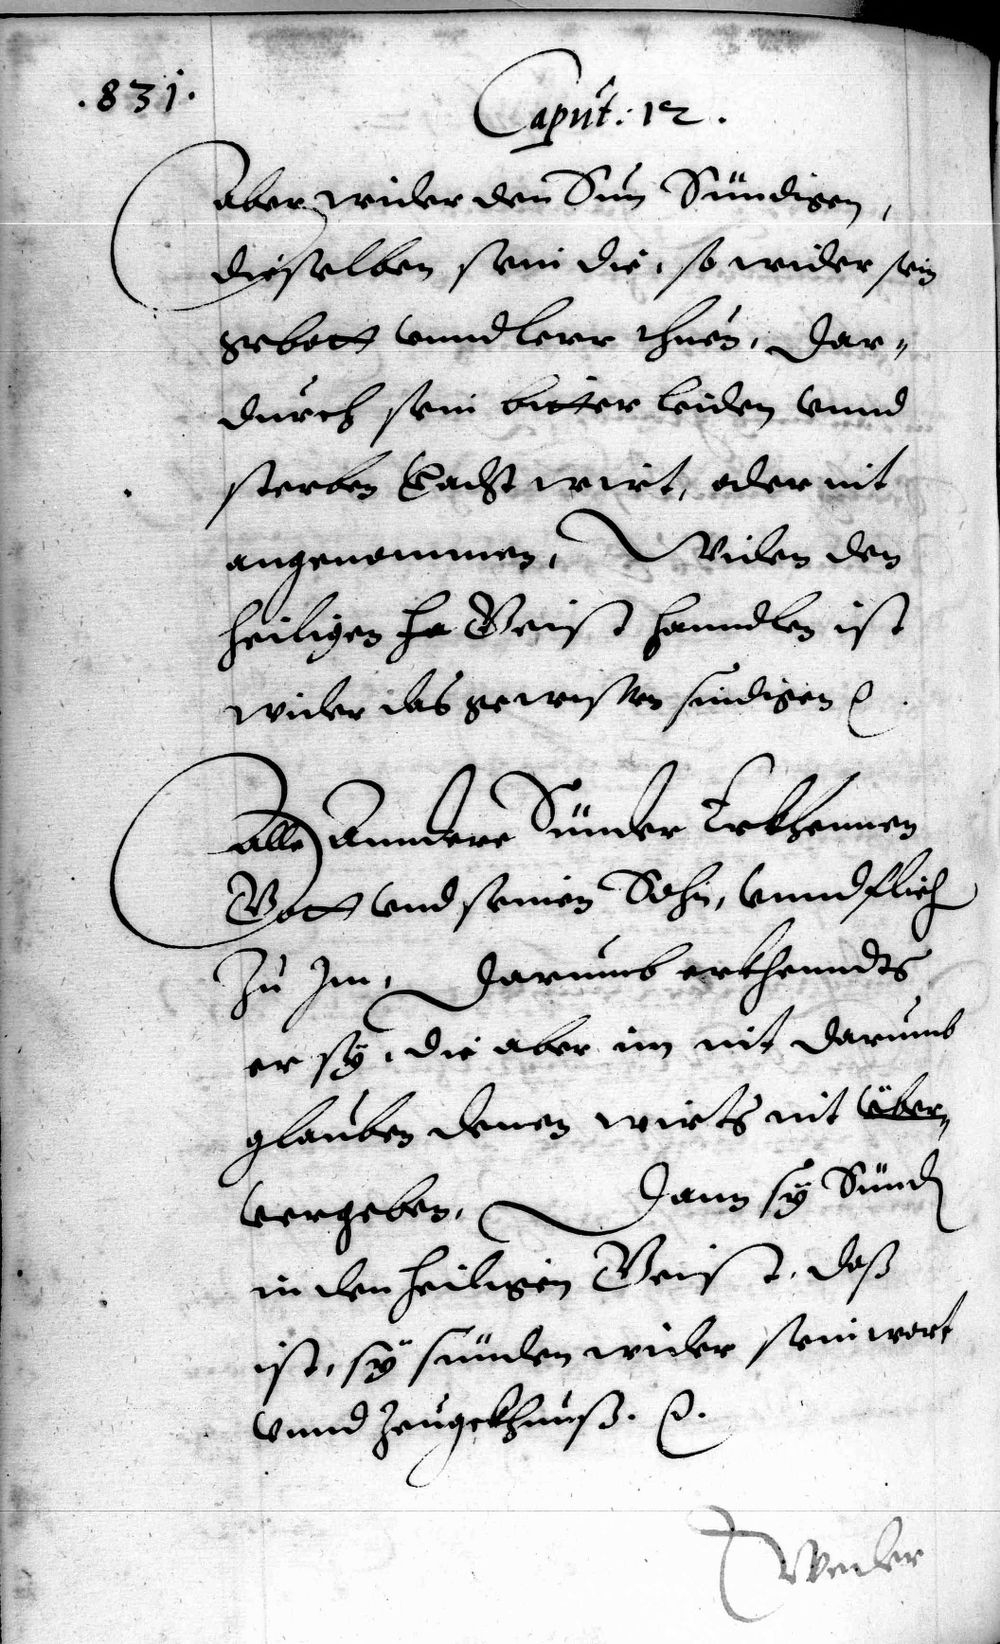 .831.
Caput: 12.
aber wider den Sun Sündigen,
dieselben sein die, so wider sein
gebott vnnd leer thuen, Dar-
durch sein bitter leiden vnnd
sterben veracht wirt, oder nit
angenommen, Wider den
heiligen Geist hanndlen ist
wider das gewissen sindigen
Alle Anndere Sünder Erkhennen
Gott vnd seinen Sohn, vnnd flieh
Zu Im, Darumb erkhenndts
er sy, die aber im nit darumb
glauben denen wirts nit über-
vergeben, Dann sy Sünd
in den heiligen Geist, daß
ist, sy sünden wider sein wort
vnnd Zeugckhnuß.
Weiler